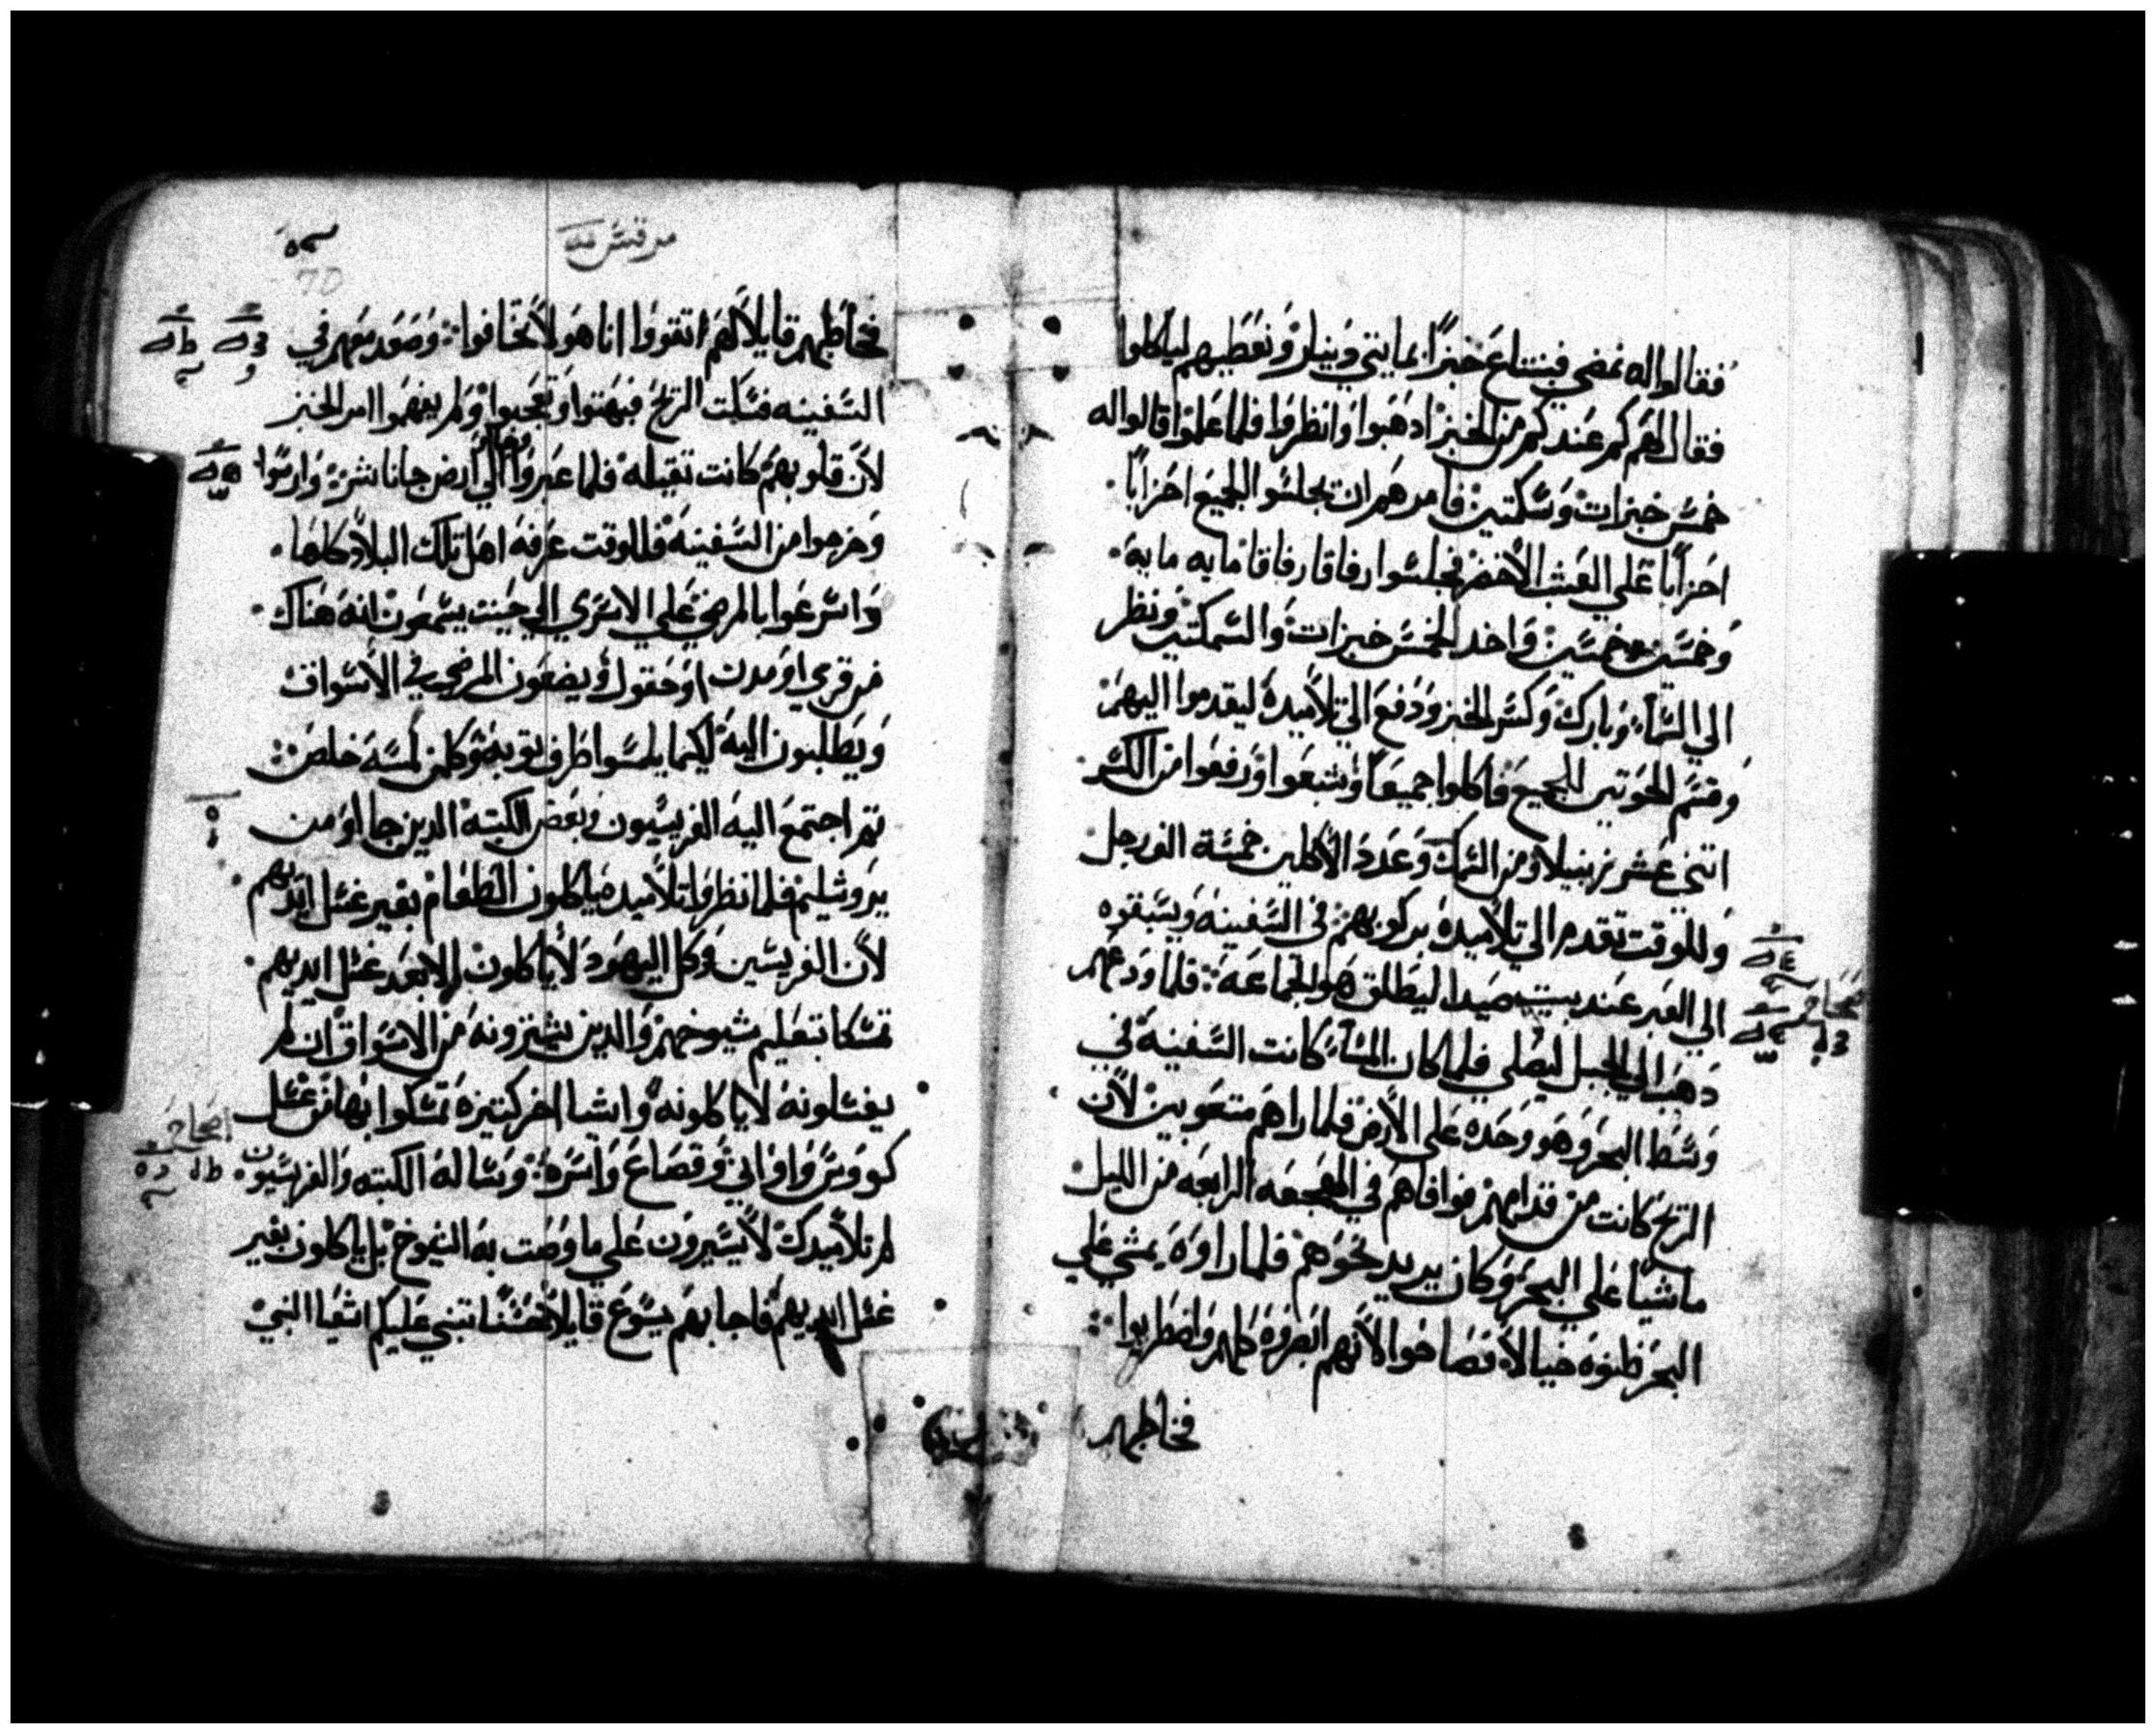 فقالوا له نمضي فبنتاع خبزًا بمايتي دينار ونعطيهم لياكلوا
فقال لهم كم عندكم من الخبز ادهبوا وانظروا فلما علموا قالوا له
خمس خبزات وسمكتين فامرهم ان تجلسوا الجميع احزابًا
احزابًا علي العشب الأخضر فجلسوا رفاقا رفاقا مايه مايه
وخمسين خمسين واخد الخمس خبزات والسمكتين ونظر
الي السمأ وبارك وكسر الخبز ودفع الي تلاميده ليقدموا اليهم
وقسم الحوتين للجميع فاكلوا جميعًا وشبعوا ورفعوا من الكسر
اتني عشر زنبيلا ومن السمك وعدد الأكلين خمسة الف رجل
وللوقت تقدم الي تلأميده بركوبهم في السفينه ويسبقوه
الي العبر عند بيت صيدا ليطلق هو الجماعه فلما ودعهم
دهب الي الجبل ليصلي فلما كان المسأ كانت السفينة في
وسط البحر وهو وحده علي الأرض فلما راهم متعوبين لأن
الريح كانت من قدامهم فوافاهم في الهجعه الرابعه من الليل
ماشيًا علي البحر وكان يريد نحوهم فلما راوه يمشي علي
البحر ظنوه خيالأ فصاخوا لأنهم ابصروه كلهم واضطربوا
فخاطبهم
مرقس
70
فخاطبهم قايلأ لهم اتقووا انا هو لأ تخافوا وصعد معهم في
السفينه فسكت الريح فبهتوا وتعجبوا ولم يفهموا امر الخبز
لأن قلوبهم كانت تقيله فلما عبروا الي ارض جاناشر وارسوا
وخرجوا من السفينه فللوقت عرفه اهل تلك البلاد كلها
واسرعوا بالمرضي علي الاسرة الي حيت يسمعون انه هناك
من قري او مدن او حقول ويضعون المرضي في الأسواق
ويطلبون اليه لكيما يلمسوا طرف توبه وكلمن لمسه خلص
تم اجتمع اليه الفريسيون وبعض الكتبه الدين جااو من
يروشليم فلما نظروا تلأميده ياكلون الطعام بغير غسل ايديهم
لأن الفريسين وكل اليهود لأ ياكلون الا بعد غسل ايديهم
تمسكا بتعليم شيوخهم والدين يشترونه من الاسواق ان لم
يغسلونه لا ياكلونه واشيا اخر كتيره تمسكوا بها من غسل
كووس واواني وقصاع واسره وسااله الكتبه والفريسيون
لم تلأميدك لأ يسيرون علي ما وصت به الشيوخ بل ياكلون بغير
غسل ايديهم فاجابهم يسوع قايلأ حسنًا تنبي عليكم اشعيا النبي